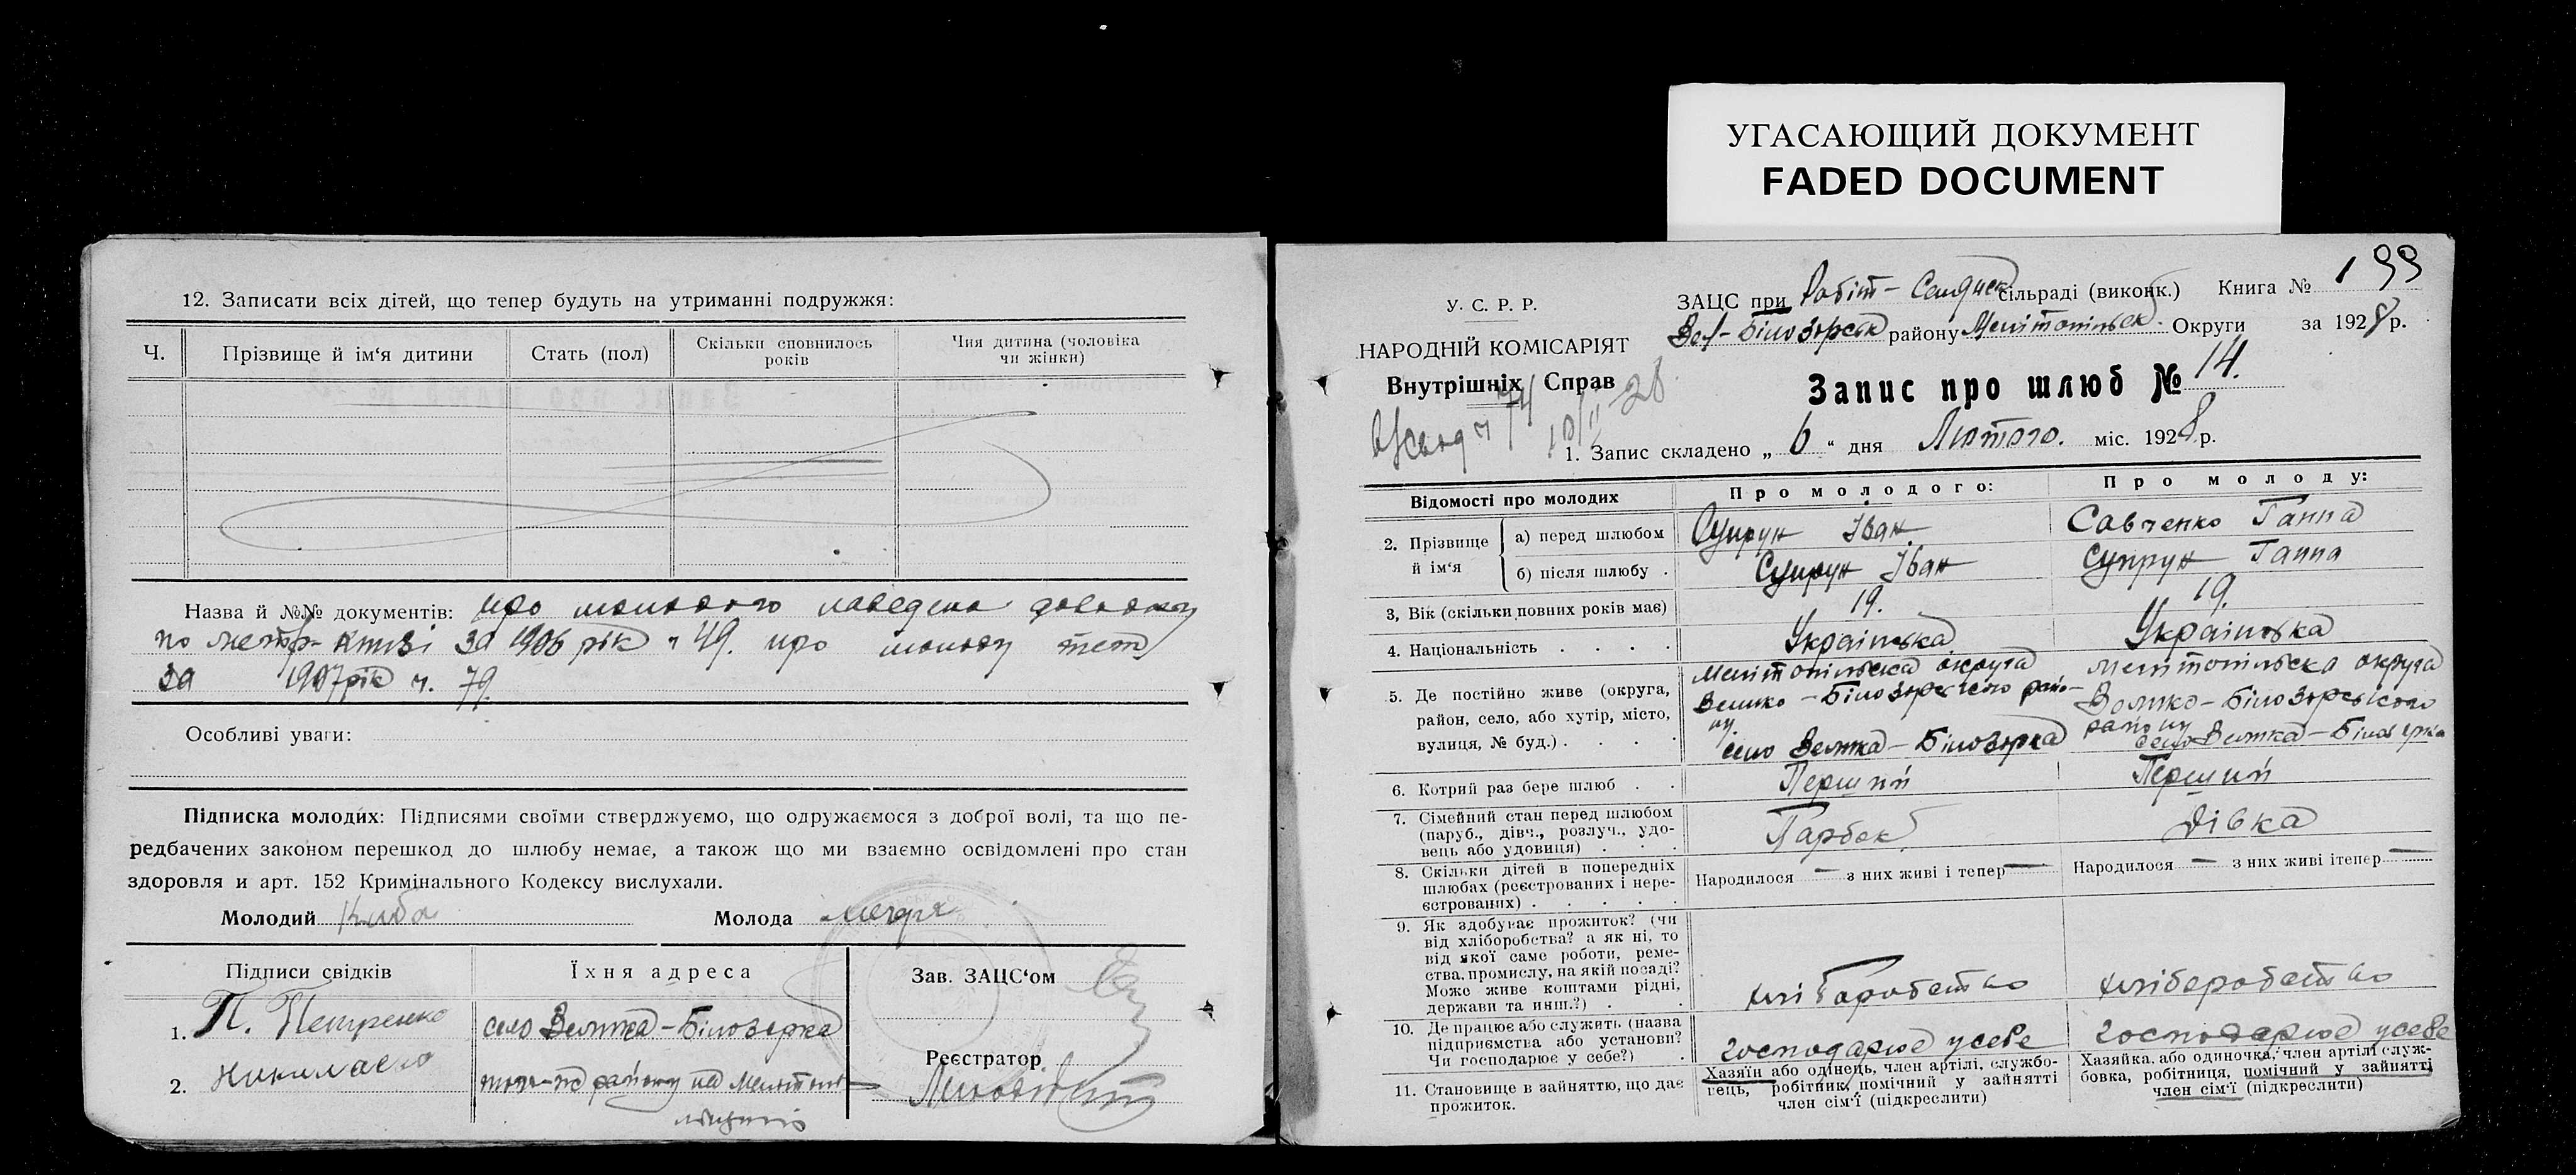 УГАСАЮЩИЙ ДОКУМЕНТ
FADED DOCUMENT
12. Записати всіх дітей, що тепер будуть на утриманні подружжя:
Ч.
Прізвище й ім‘я дитини
Стать (пол)
Скільки сповнилось років
Чия дитина (чоловіка чи жінки)
Назва й №№ документів: про молодого
по метр. книзі за 1906 рік ч 49. про молоду теж
за 1907 рік ч. 79.
Особливі уваги:
Підписка молодих: Підписями своїми стверджуємо, що одружаємося з доброї волі, та що пе-
редбачених законом перешкод до шлюбу немає, а також що ми взаємно освідомлені про стан
здоровля и арт. 152 Кримінального Кодексу вислухали.
Молодий
Молода
Підписи свідків
Їхня адреса
Зав. ЗАЦС‘ом
1. П. Петренко
село Велика-Білозерка
Реєстратор
2.
району на
У. С. Р. Р.
НАРОДНІЙ КОМІСАРІЯТ
Внутрішніх Справ
ЗАЦС при сільраді (виконк.) Книга № 199
Вел-Білозірськ району Мелітопільськ. Округи за 1928 р.
Запис про шлюб № 14.
10/II 28
1. Запис складено „ 6 “ дня Лютого. міс. 1928 р.
Відомості про молодих
Про молодого:
Про молоду:
2. Прізвище й ім‘я
а) перед шлюбом
Супрун Іван
Савченко Ганна
б) після шлюбу .
Супрун Іван
Супрун Ганна
3, Вік (скільки повних років має)
19.
19.
4. Національність . . . .
Українська
Українська
5. Де постійно живе (округа,
район, село, або хутір, місто,
вулиця, № буд.) . . . .
Мелітопільска округа
Велико-Білозірського райо-
ну
село Велика-Білозірка
Мелітопільска округа
Велико-Білозірського
району
село Велика-Білозерка
6. Котрий раз бере шлюб . .
Перший
Перший
7. Сімейний стан перед шлюбом
(паруб., дівч., розлуч., удо-
вець або удовиця) . . .
Парбок
дівка
8. Скільки дітей в попередніх
шлюбах (реєстрованих і нере-
єстрованих) . . . . .
Народилося — з них живі і тепер —
Народилося — з них живі ітепер —
9. Як здобуває прожиток? (чи
від хліборобства? а як ні, то
від якої саме роботи, реме-
ства, промислу, на якій посаді?
Може живе коштами рідні,
держави та инш.?) . .
хліборобство
хліборобство
10. Де працює або служить (назва
підприємства або установи?
Чи господарює у себе?) .
господарює у себе
господарює у себе
11. Становище в зайняттю, що дає
прожиток.
Хазяїн або одинець, член артілі, службо-
вець, робітник, помічний у зайнятті
член сім‘ї (підкреслити)
Хазяйка, або одиночка, член артілі служ-
бовка, робітниця, помічний у зайнятті
член сім‘ї (підкреслити)